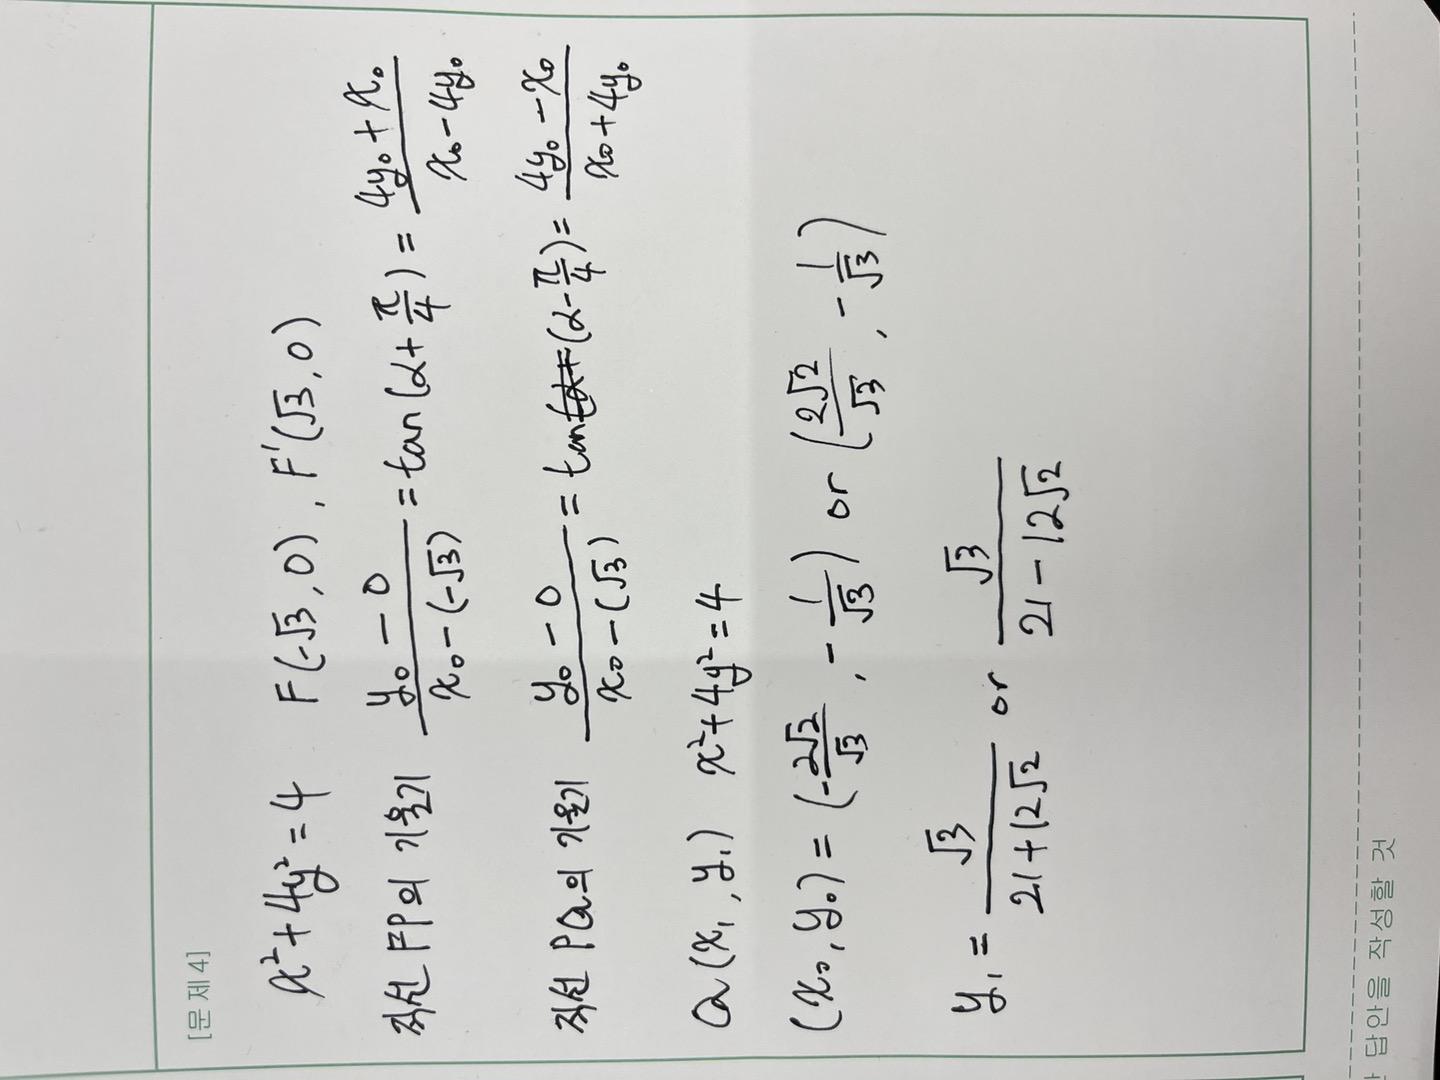 [문제 4]
x²+4y²=4   F(-√3, 0), F'(√3, 0)
직선 FP의 기울기 (y₀-0)/(x₀-(-√3)) = tan(α+π/4) = (4y₀+x₀)/(x₀-4y₀)
직선 PQ의 기울기 (y₀-0)/(x₀-(√3)) = tan(α-π/4) = (4y₀-x₀)/(x₀+4y₀)
Q(x₁, y₁)   x²+4y²=4
(x₀, y₀) = (-2√2/√3, -1/√3) or (2√2/√3, -1/√3)
y₁ = √3/(21+12√2) or √3/(21-12√2)
답안을 작성할 것